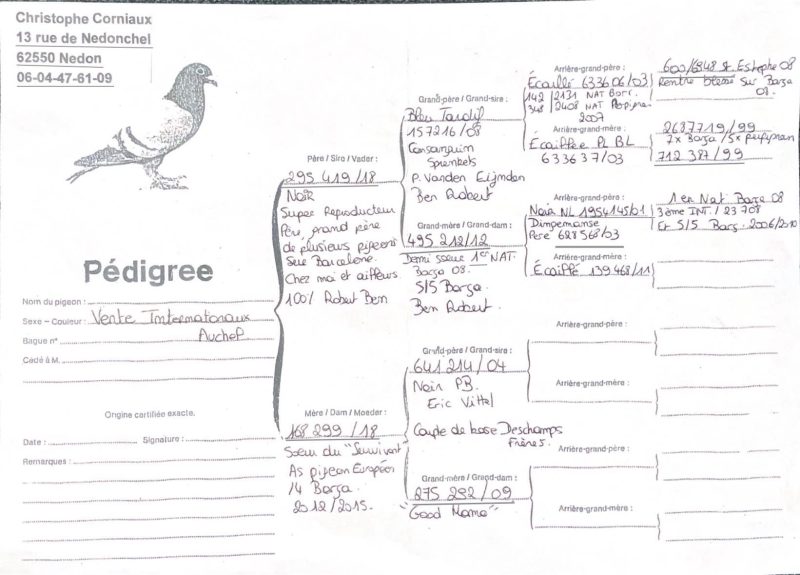 Christophe Corniaux
13 rue de Nedonchel
62550 Nedon
06-04-47-61-09
Pédigree
Nom du pigeon :
Sexe - Couleur : Vente Internationaux
Bague n° Auchel
Cédé à M.
Origine certifiée exacte.
Date : Signature :
Remarques :
Père / Sire / Vader :
295 419/18
Noir
Super Reproducteur
Père, grand père
de plusieurs pigeons
Sur Barcelone.
Chez moi et ailleurs.
100% Robert Ben
Mère / Dam / Moeder :
168 299/18
Soeur du "Survivant"
As pigeon Européen
14 Barça.
2012/2015.
Grand-père / Grand-sire :
Bleu Tardif
157216/08
Consanguin
Sprenkels
P. Vanden Eijnden
Ben Robert
Grand-mère / Grand-dam :
495 212/12
Demi soeur 1er NAT.
Barça 08.
5/5 Barça.
Ben Robert.
Grand-père / Grand-sire :
641 214/04
Noir PB.
Eric Vittel
Couple de base Deschamps
Frères.
Grand-mère / Grand-dam :
275 292/09
"Good Mama"
Arrière-grand-père :
Écaillé 633606/03
142 2131 NAT Barc.
348 2408 NAT Perpignan
2007
Arrière-grand-mère :
Écaillée PL BL
633637/03
Arrière-grand-père :
Noir NL 1954145/01
Dimpemanse
Père 628568/03
Arrière-grand-mère :
Écaillé 139468/11
Arrière-grand-père :
Arrière-grand-mère :
Arrière-grand-père :
Arrière-grand-mère :
600/6948 St. Estephe 08
Rentre blessé sur Barça
08.
2687719/99
7x Barça /5x perpignan
712 387/99
1er Nat Barça 08
3ème INT. / 23 708
Et 5/5 Barç. 2006/2010